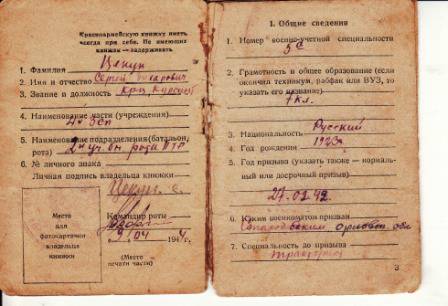 Красноармейскую книжку иметь
всегда при себе. Не имеющих
книжки — задерживать
1. Фамилия Цекун
2. Имя и отчество Сергей
3. Звание и должность Кр-ц Курсант
4. Наименование части (учреждения)
5. Наименование подразделения (батальон,
рота) 2й уч. бн рота ПТР
6. № личного знака
Личная подпись владельца книжки
Цекун С.
Место
для
фотокарточки
владельца
книжки
Командир роты
04 1944
(Место
печати части)
I. Общие сведения
1. Номер военно-учетной специальности
2. Грамотность и общее образование (если
окончил техникум, рабфак или ВУЗ, то
указать его название)
7 кл.
3. Национальность Русский
4. Год рождения 1923
5. Год призыва (указать также — нормаль-
ный или досрочный призыв)
27.02.42
6. Каким военкоматом призван
обл
7. Специальность до призыва
тракторист
3